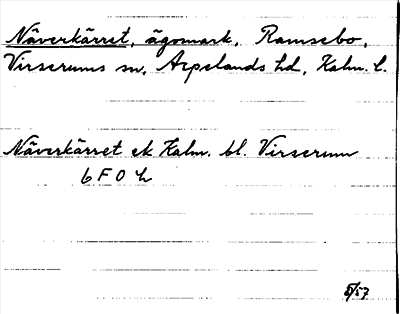 Näverkärret, ägosmark, Ramsebo,
Virserums sn, Aspelands hd, Kalm. l.
Näverkärret ek Kalm. bl. Virserum
6 F 0 h
5/57